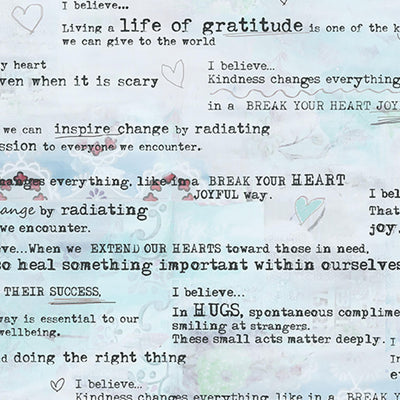 I believe...
Living a life of gratitude is one of the k
we can give to the world
y heart
ven when it is scary
I believe...
Kindness changes everything
in a BREAK YOUR HEART JOY
we can inspire change by radiating
ssion to everyone we encounter.
hanges everything, like in a BREAK YOUR HEART
JOYFUL way.
ange by radiating
we encounter.
I bel
That
joy.
ve...When we EXTEND OUR HEARTS toward those in need,
so heal something important within ourselves
THEIR SUCCESS,
way is essential to our
wellbeing.
d doing the right thing
I believe...
In HUGS, spontaneous complime
smiling at strangers.
These small acts matter deeply.
I
In
e
I believe...
Kindness changes everything like in a BREAK Y